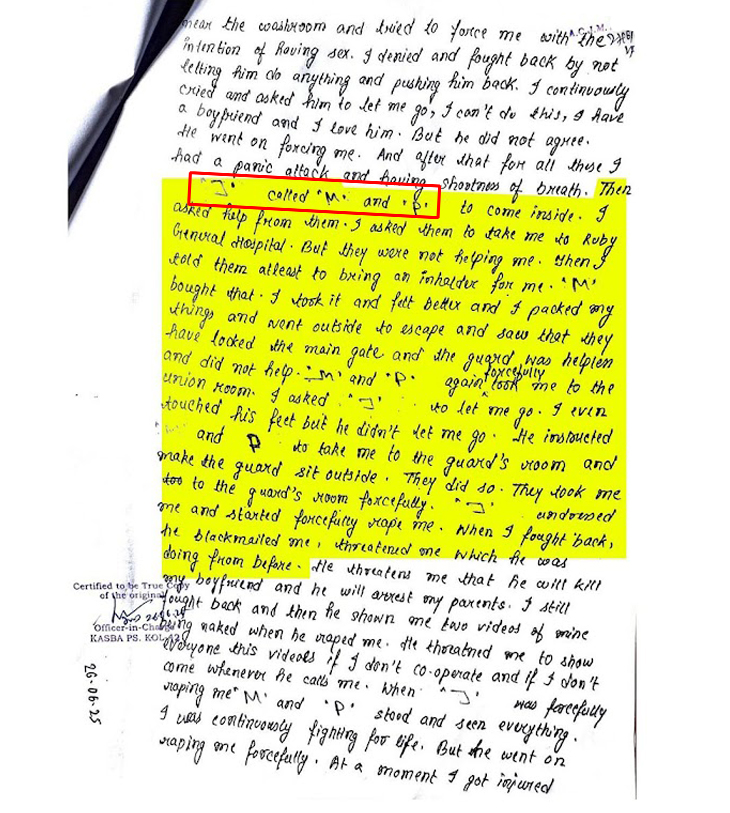 near the washroom and tried to force me with the
A.C.J.M.
intention of having sex. I denied and fought back by not
letting him do anything and pushing him back. I continuously
cried and asked him to let me go, I can't do this, I have
a boyfriend and I love him. But he did not agree.
He went on forcing me. And after that for all these I
had a panic attack and having shortness of breath. Then
"J" called "M" and "P" to come inside. I
asked help from them. I asked them to take me to Ruby
General Hospital. But they were not helping me. Then I
told them atleast to bring an inhaler for me. "M"
bought that. I took it and felt better and I packed my
things and went outside to escape and saw that they
have locked the main gate and the guard was helpless
and did not help. "M" and "P" again forcefully took me to the
union room. I asked "J" to let me go. I even
touched his feet but he didn't let me go. He instructed
and P to take me to the guard's room and
make the guard sit outside. They did so. They took me
too to the guard's room forcefully. "J" undressed
me and started forcefully rape me. When I fought back,
he blackmailed me, threatened me which he was
doing from before. He threatens me that he will kill
my boyfriend and he will arrest my parents. I still
fought back and then he shown me two videos of mine
being naked when he raped me. He threatned me to show
everyone this videoes if I don't co-operate and if I don't
come whenever he calls me. When "J" was forcefully
raping me "M" and "P" stood and seen everything.
I was continuously fighting for life. But he went on
raping me forcefully. At a moment I got injured
Certified to be True Copy
of the original
Officer-in-Charge
KASBA PS. KOL-42
26.06.25